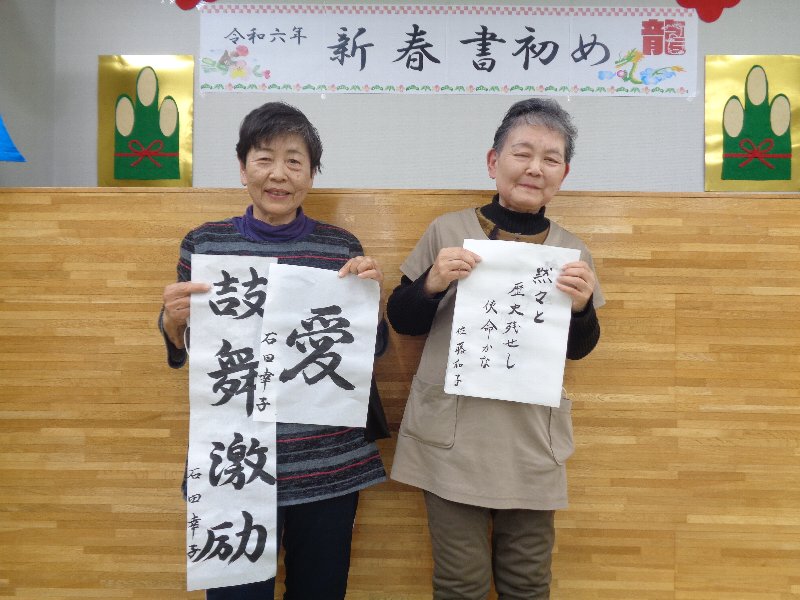 令和六年
新春書初め
龍
鼓舞激励
石田幸子
愛
石田幸子
黙々と
歴史残せし
使命かな
佐藤和子